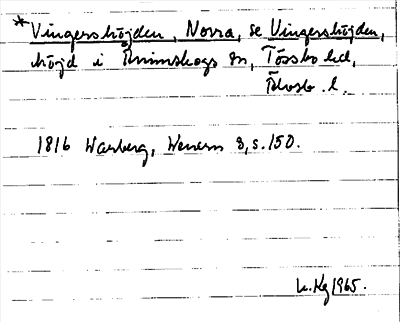 *Vingershöjden, Norra, se Vingershöjden,
höjd i Ånimskogs sn, Tössbo hd,
Älvsb. l.
1816 Warberg, Wenern 8, s. 150.
Kg 1965.